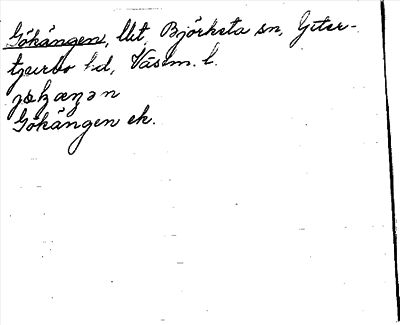 Gökängen, llt, Björksta sn, Ytter-
tjurbo hd, Väsm. l.
Gökängen ek.